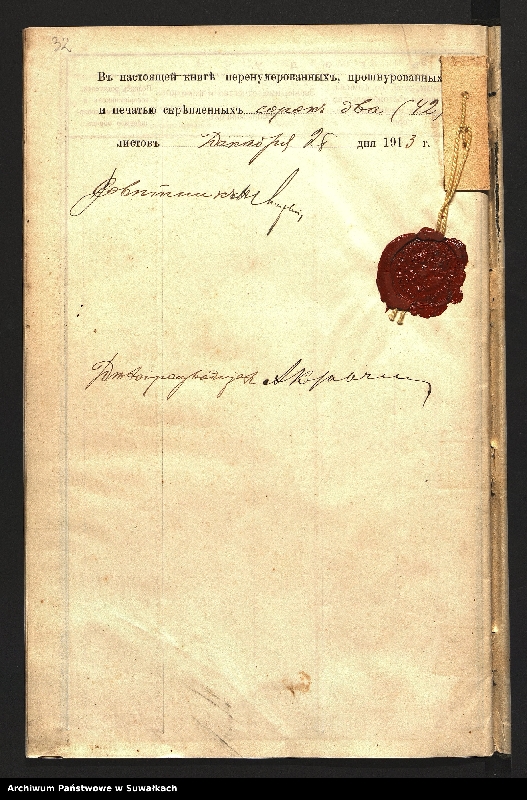 32
Въ настоящей книгѣ перенумерованныхъ, прошнурованныхъ
и печатью скрѣпленныхъ сорокъ два (42)
листовъ Декабря 28 дня 1913 г.
Совѣтникъ
Дѣлопроизводитель
Archiwum Państwowe w Suwałkach